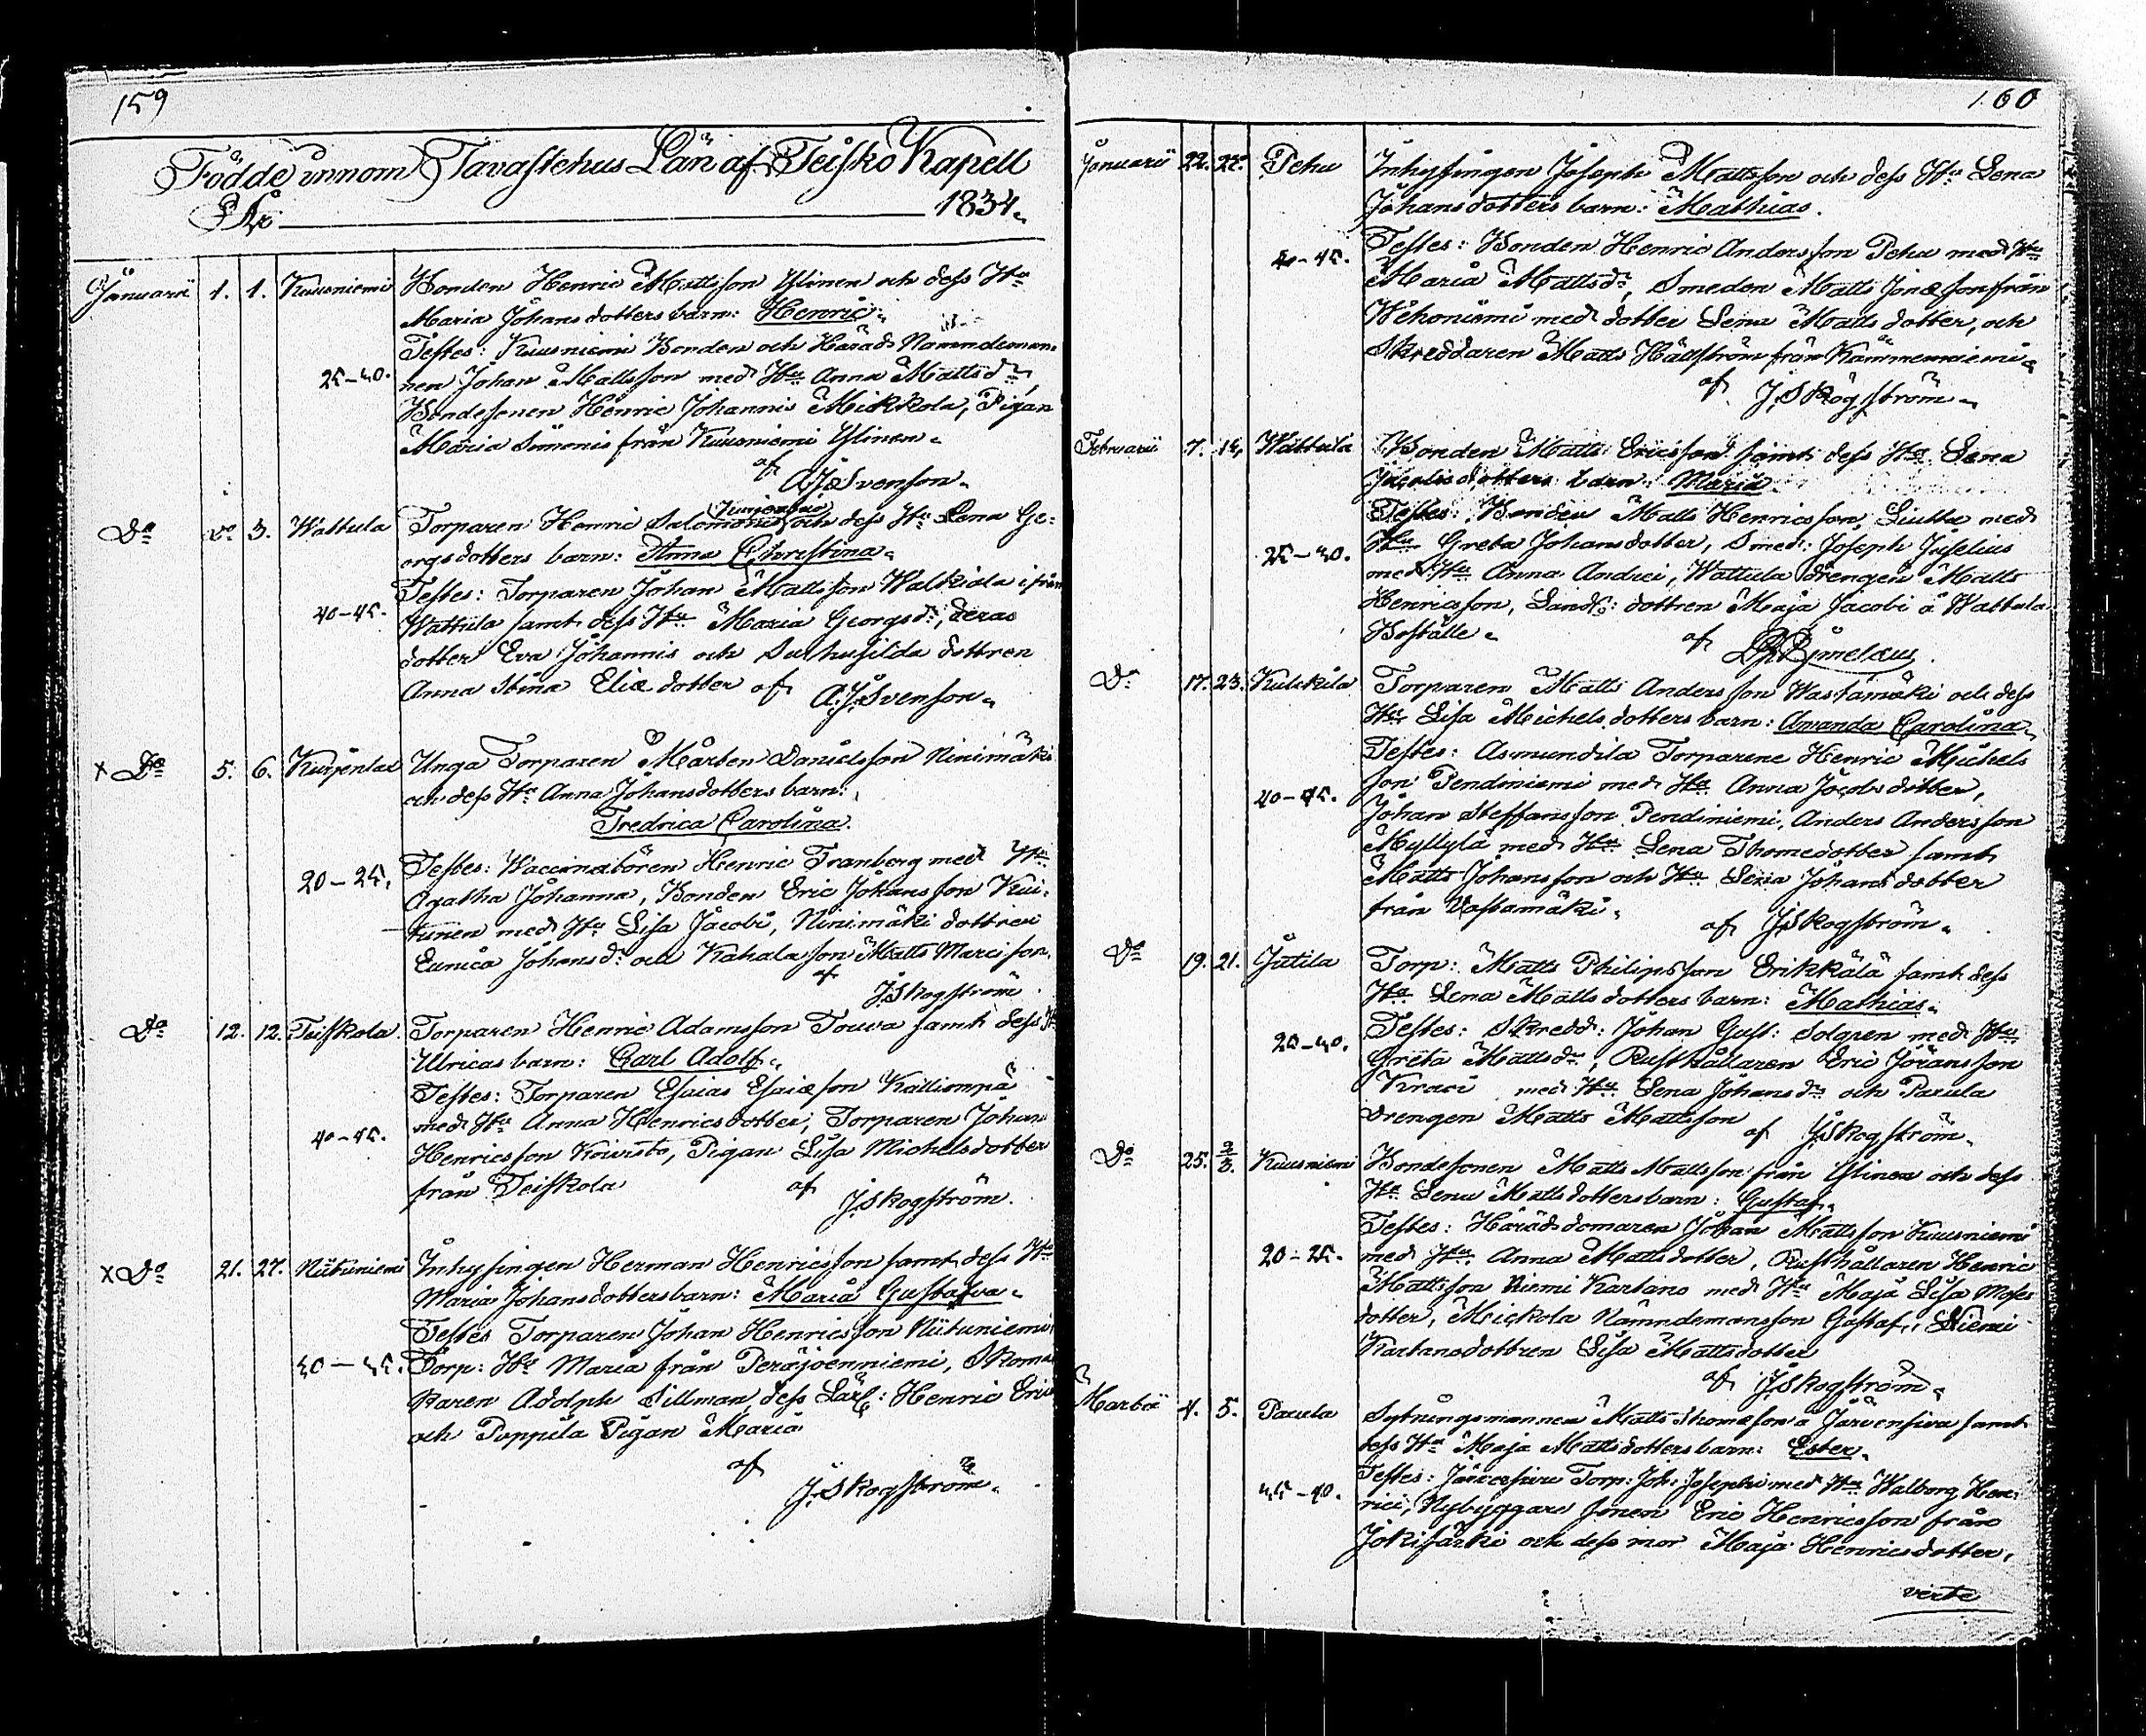 159
Födde innom Tavastehus Län af Teisko Kapell
År 1834.
Januarii 1. 1. Kuusniemi Bonden Henric Mattsson Ylinen och dess Hu
Maria Johansdotters barn: Henric.
Testes: Kuusniemi Bonden och Härads Namndeman-
25-40. nen Johan Mattsson med Hu Anna Mattsdr,
Bondesonen Henric Johannis Mickkola, Pigan
Maria Simonis från Kuusniemi Ylinen.
af
A.J. Svenson.
Do Do 3. Wattula Torparen Henric Salomonis och dess Hu Lena Ge-
orgsdotters barn: Anna Christina.
Testes: Torparen Johan Mattsson Walkiala ifrån
40-45. Wattula samt dess Hu Maria Georgsdr, deras
dotter Eva Johannis och dottren
Anna Stina Eliæ dotter af A.J. Svenson.
x Do 5. 6. Kurjenlax Unga Torparen Mårten Danielsson Ninimäki
och dess Hu Anna Johansdotters barn:
Fredrica Carolina.
Testes: Waccinatören Henric Franberg med Hu
20-25. Agatha Johanna, Bonden Eric Johansson Kui-
tunen med Hu Lisa Jacobi, Ninimäki dottren
Eunica Johansdr och Kahala son Matts Marcisson.
af
J. Skogström.
Do 12. 12. Teiskola. Torparen Henric Adamsson Touva samt dess Hu
Ulricas barn: Carl Adolf.
Testes: Torparen Esaias Esaiæson Kalliompä
med Hu Anna Henricsdotter, Torparen Johan
40-45. Henricsson Koivisto, Pigan Lisa Michelsdotter
från Teiskola af
J. Skogström.
x Do 21. 27. Niituniemi Inhysingen Herman Henricsson samt dess Hu
Maria Johansdotters barn: Maria Gustafva.
Testes Torparen Johan Henricsson Niituniemi
40-45. Torp: Hu Maria från Peräjoenniemi, Skoma-
karen Adolph Sillman, dess Lärl: Henric Eric
och Puppila Pigan Maria
af
J. Skogström.
160
Januarii 22. 22. Pehu Inhysingen Joseph Mattsson och dess Hu Lena
Johansdotters barn: Mathias.
Testes: Bonden Henric Andersson Pehu med Hu
40-45. Maria Mattsdr, Smeden Matts Jonæson från
Wehoniemi med dotter Lena Mattsdotter, och
Skreddaren Matts Hällström från Kämmenniemi
af J. Skogström.
Februarii 7. 14. Wattula Bonden Matts Ericsson samt dess Hu Lena
Jacobsdotters barn: Maria
Testes: Bonden Matts Henricsson Liutta med
25-40. Hu Greta Johansdotter, Smed: Joseph Juselius
med Hu Anna Andrei, Wattula drengen Matts
Henricsson, dottren Maja Jacobi å Wattula
Boställe. af
Do 17. 23. Kulckila Torparen Matts Andersson Wastamäki och dess
Hu Lisa Michels dotters barn: Amanda Carolina.
Testes: Asmundila Torparene Henric Michels
son Pendiniemi med Hu Anna Jacobsdotter,
40-45. Johan Steffansson Pendiniemi, Anders Andersson
Myllylä med Hu Lena Thomedotter samt
Matts Johansson och Hu Lena Johansdotter
från Vastamäki. af J. Skogström.
Do 19. 21. Jutila Torp: Matts Philipsson Erikkälä samt dess
Hu Lena Mattsdotters barn: Mathias.
Testes: Skredd: Johan Gust: Solgren med Hu
25-40. Greta Mattsdr, Rusthållaren Eric Göransson
Kraci med Hu Lena Johansdr och Paxula
drengen Matts Mattsson af J. Skogström.
Do 25. 2/3. Kuusniemi Bondesonen Matts Mattsson från Ylinen och dess
Hu Lena Mattsdotters barn: Gustaf.
Testes: Häradsdomaren Johan Mattsson Kuusniemi
20-25. med Hu Anna Mattsdotter, Rusthållaren Henric
Mattsson Niemi Kartano med Hu Maja Lisa Moses
dotter, Mickola Nämndemansson Gustaf, Niemi
Kartanodottren Lisa Mattsdotter
af J. Skogström.
Martii 4. 5. Paxula Sytningsmannen Matts Thomeson å Järvensivu samt
dess Hu Maja Mattsdotters barn: Ester.
Testes: Järvensivu Torp: Joh: Josephi med Hu Walborg Hen-
45-40. rici, Nybyggare sonen Eric Henricsson från
Jokisärki och dess mor Maja Henricsdotter,
verte